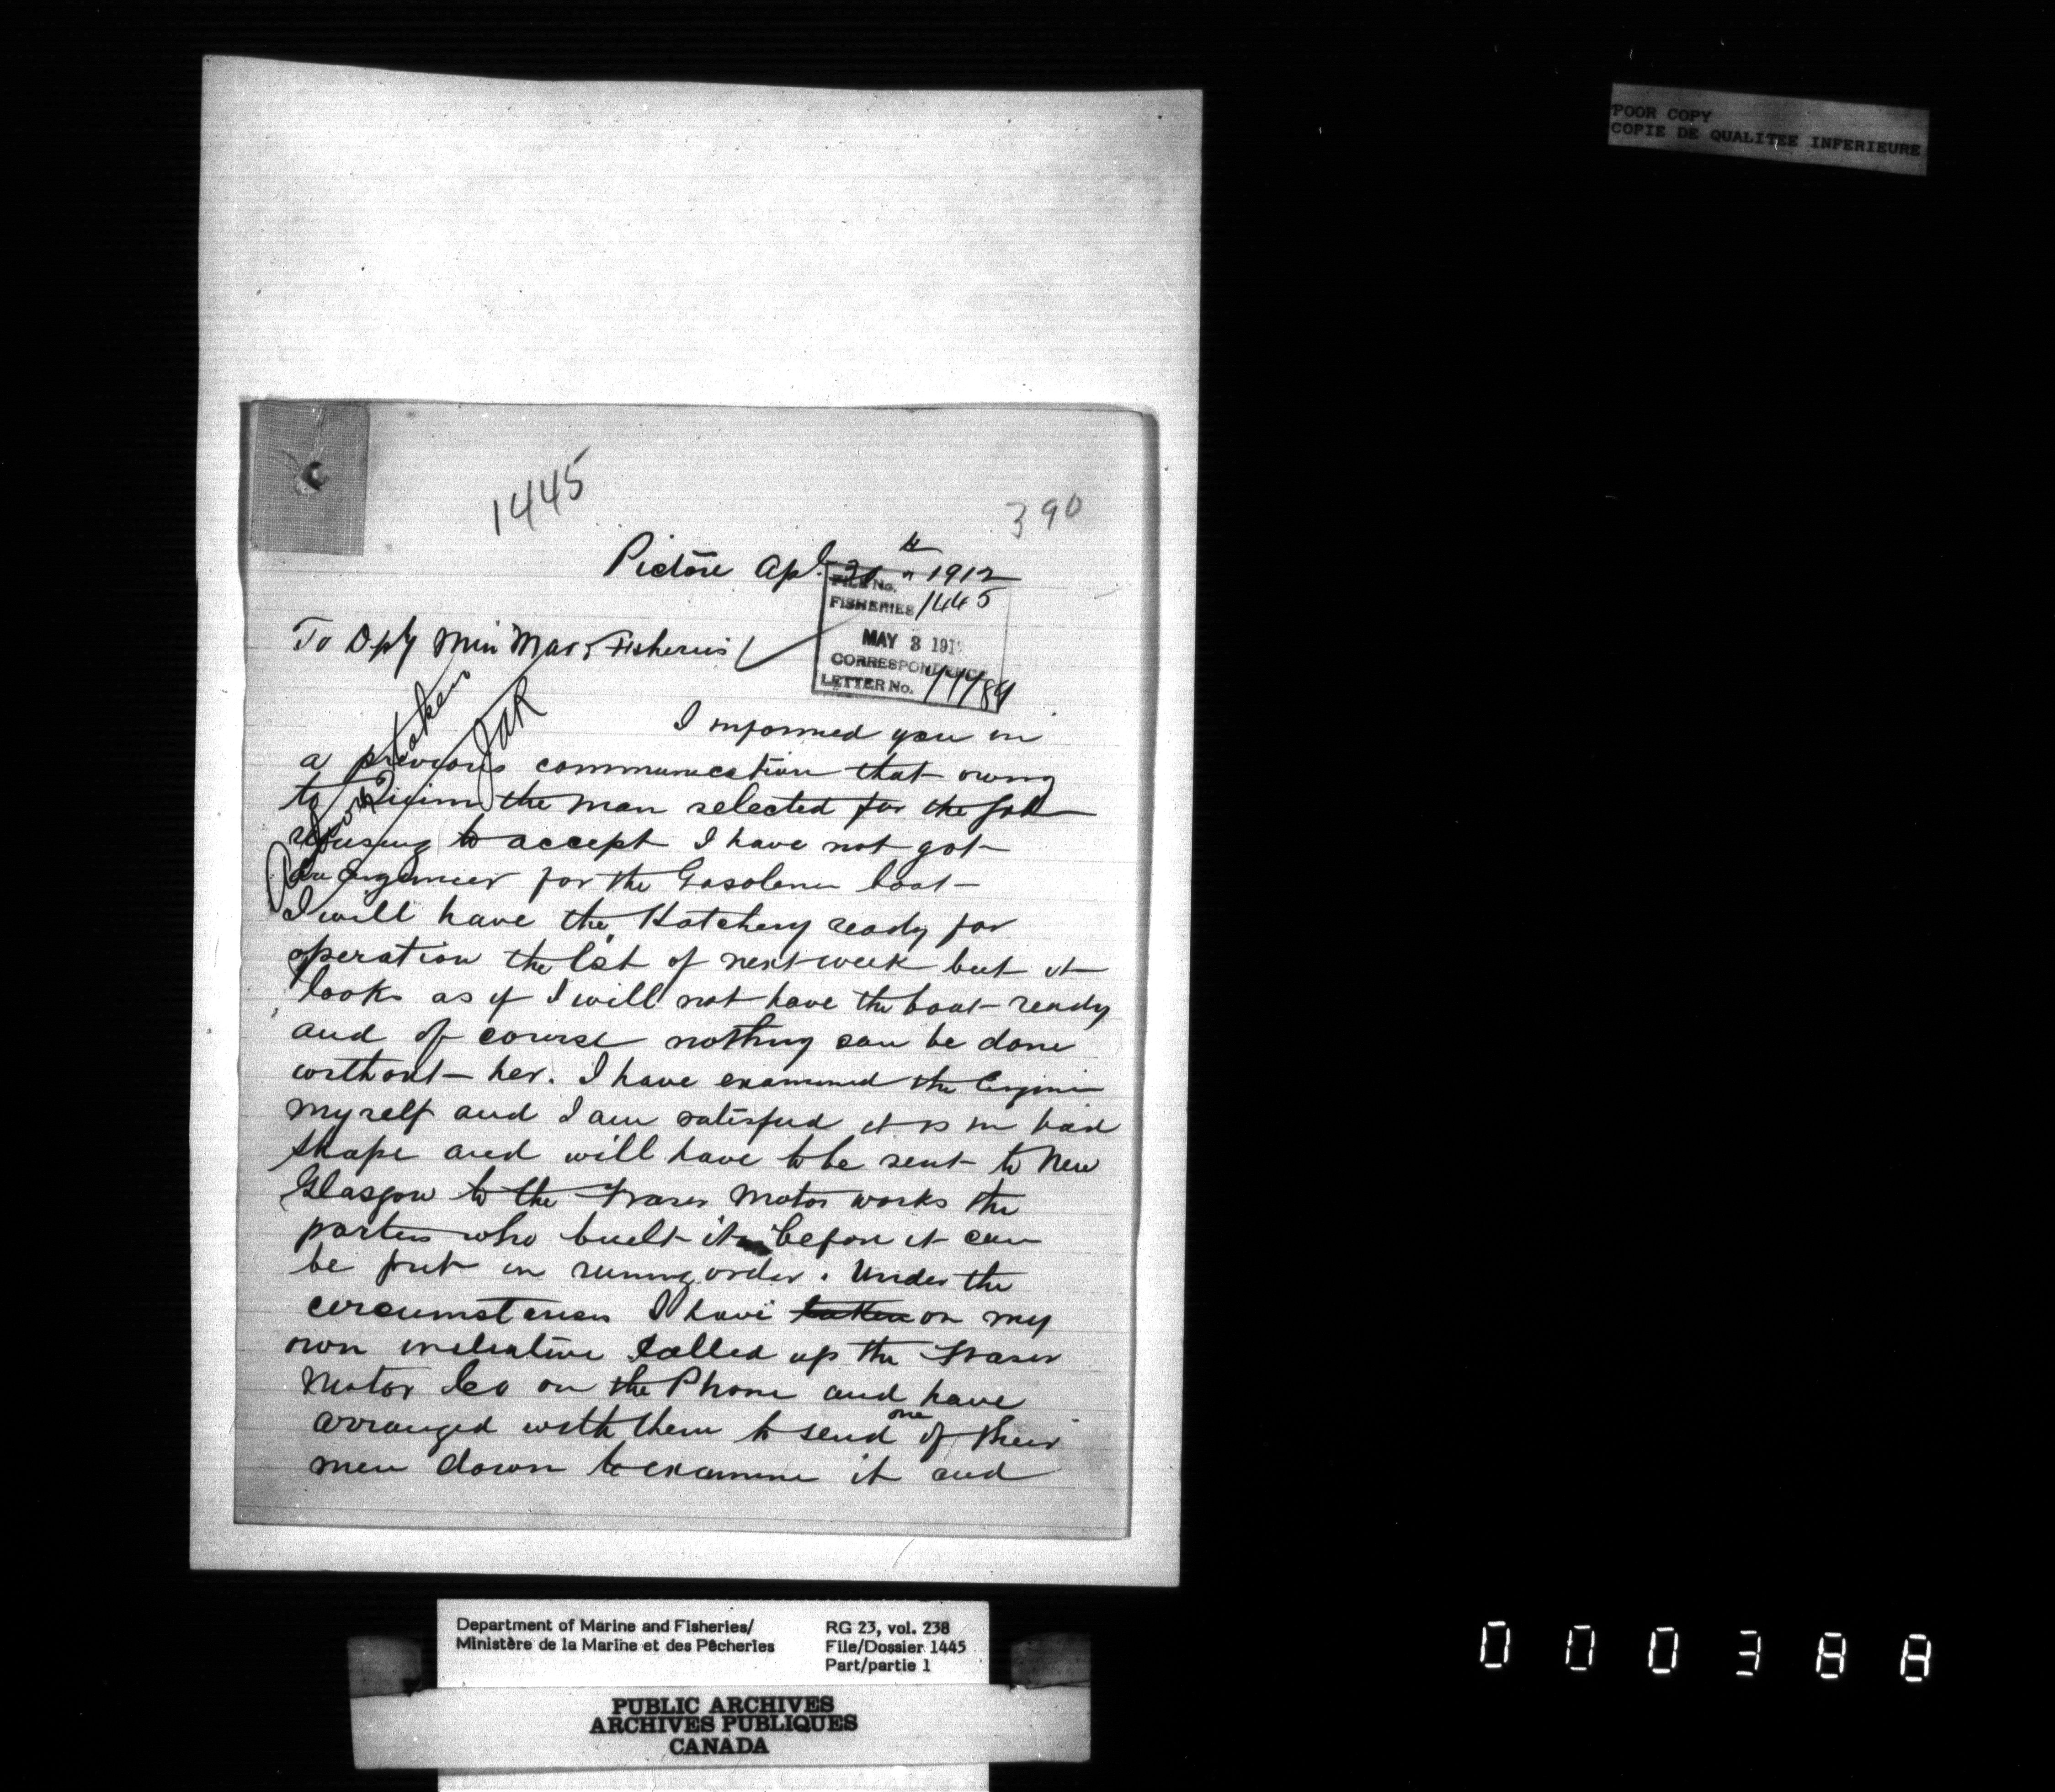 POOR COPY
COPIE DE QUALITEE INFERIEURE
1445
390
Pictou Apl. 30th 1912
FILE No.
FISHERIES 1445
MAY 3 191
CORRESPONDENCE
LETTER No.
To Dpty Min Mar & Fisheries
JAR
I informed you in
a previous communication that owing
to the man selected for the job
refusing to accept I have not got
an Engineer for the Gasolene boat
I will have the Hatchery ready for
operation the 1st of next week but it
looks as if I will not have the boat ready
and of course nothing can be done
without her. I have examined the Engine
myself and I am satisfied it is in bad
shape and will have to be sent to New
Glasgow to the Fraser Motor works the
parties who built it before it can
be put in runing order. Under the
circumstances I have on my
own iniliative called up the Fraser
Motor Co on the Phone and have
arranged with them to send one of their
men down to examine it and
Department of Marine and Fisheries/
Ministère de la Marine et des Pêcheries
RG 23, vol. 238
File/Dossier 1445
Part/partie 1
PUBLIC ARCHIVES
ARCHIVES PUBLIQUES
CANADA
000388